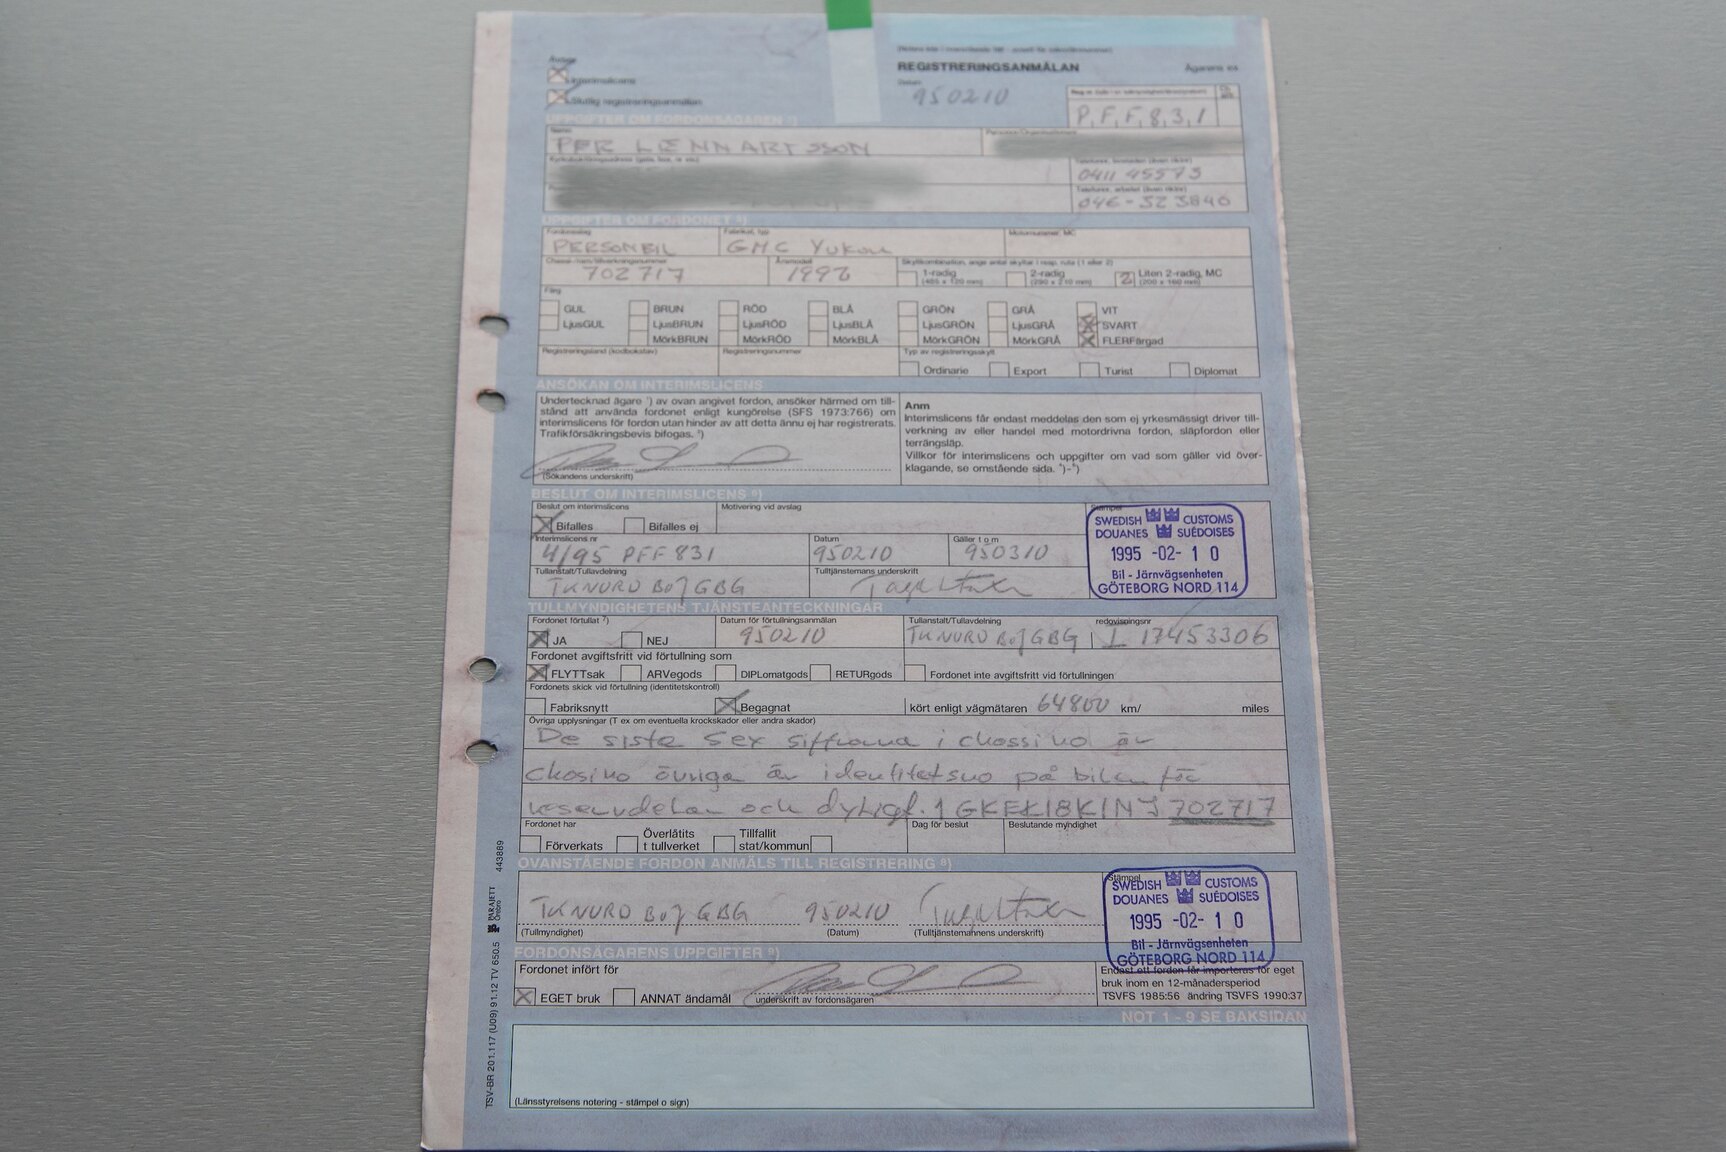 REGISTRERINGSANMÄLAN
Ägarens ex
Avser
Interimslicens
Slutlig registreringsanmälan
Datum
950210
P,F,F,8,3,1
UPPGIFTER OM FORDONSÄGAREN ¹)
Namn
PER LENNARTSSON
0411 45573
046-323840
UPPGIFTER OM FORDONET ²)
Fordonsslag
Fabrikat, typ
Motornummer, MC
PERSONBIL
GMC Yukon
Årsmodell
Skyltkombination, ange antal skyltar i resp. ruta (1 eller 2)
702717
1992
1-radig
2-radig
2 Liten 2-radig, MC
(200 x 160 mm)
Färg
GUL BRUN RÖD BLÅ GRÖN GRÅ VIT
LjusGUL LjusBRUN LjusRÖD LjusBLÅ LjusGRÖN LjusGRÅ SVART
MörkBRUN MörkRÖD MörkBLÅ MörkGRÖN MörkGRÅ FLERFärgad
Registreringsland (kodbokstav)
Registreringsnummer
Typ av registreringsskylt
Ordinarie Export Turist Diplomat
ANSÖKAN OM INTERIMSLICENS
Undertecknad ägare ¹) av ovan angivet fordon, ansöker härmed om till-
stånd att använda fordonet enligt kungörelse (SFS 1973:766) om
interimslicens för fordon utan hinder av att detta ännu ej har registrerats.
Trafikförsäkringsbevis bifogas. ⁴)
(Sökandens underskrift)
Anm
Interimslicens får endast meddelas den som ej yrkesmässigt driver till-
verkning av eller handel med motordrivna fordon, släpfordon eller
terrängsläp.
Villkor för interimslicens och uppgifter om vad som gäller vid över-
klagande, se omstående sida. ⁵)-⁶)
BESLUT OM INTERIMSLICENS ⁶)
Beslut om interimslicens
Motivering vid avslag
Stämpel
Bifalles Bifalles ej
SWEDISH CUSTOMS
DOUANES SUÉDOISES
1995 -02- 1 0
Bil - Järnvägsenheten
GÖTEBORG NORD 114
Interimslicens nr
Datum
Gäller t o m
4/95 PFF 831
950210
950310
Tullanstalt/Tullavdelning
Tulltjänstemans underskrift
TKNORD BoJ GBG
TULLMYNDIGHETENS TJÄNSTEANTECKNINGAR
Fordonet förtullat ⁷)
Datum för förtullningsanmälan
Tullanstalt/Tullavdelning
redovisningsnr
JA NEJ
950210
TKNORD BoJ GBG
I 17453306
Fordonet avgiftsfritt vid förtullning som
FLYTTsak ARVegods DIPLomatgods RETURgods Fordonet inte avgiftsfritt vid förtullningen
Fordonets skick vid förtullning (identitetskontroll)
Fabriksnytt Begagnat kört enligt vägmätaren 64800 km/ miles
Övriga upplysningar (T ex om eventuella krockskador eller andra skador)
De sista sex siffrorna i chassino är
chasino övriga är identitetsno på bilen för
reservdelar och dyligt. 1GKEK18K1NJ 702717
Fordonet har
Dag för beslut
Beslutande myndighet
Förverkats
Överlåtits
t tullverket
Tillfallit
stat/kommun
OVANSTÅENDE FORDON ANMÄLS TILL REGISTRERING ⁸)
Stämpel
TKNORD BoJ GBG
950210
(Tullmyndighet)
(Datum)
(Tulltjänstemannens underskrift)
SWEDISH CUSTOMS
DOUANES SUÉDOISES
1995 -02- 1 0
Bil - Järnvägsenheten
GÖTEBORG NORD 114
FORDONSÄGARENS UPPGIFTER ⁹)
Fordonet infört för
EGET bruk ANNAT ändamål
underskrift av fordonsägaren
Endast ett fordon får importeras för eget
bruk inom en 12-månadersperiod
TSVFS 1985:56 ändring TSVFS 1990:37
NOT 1 - 9 SE BAKSIDAN
(Länsstyrelsens notering - stämpel o sign)
TSV-BR 201.117 (U09) 91.12 TV 650.5 PARAJETT Örebro 443889